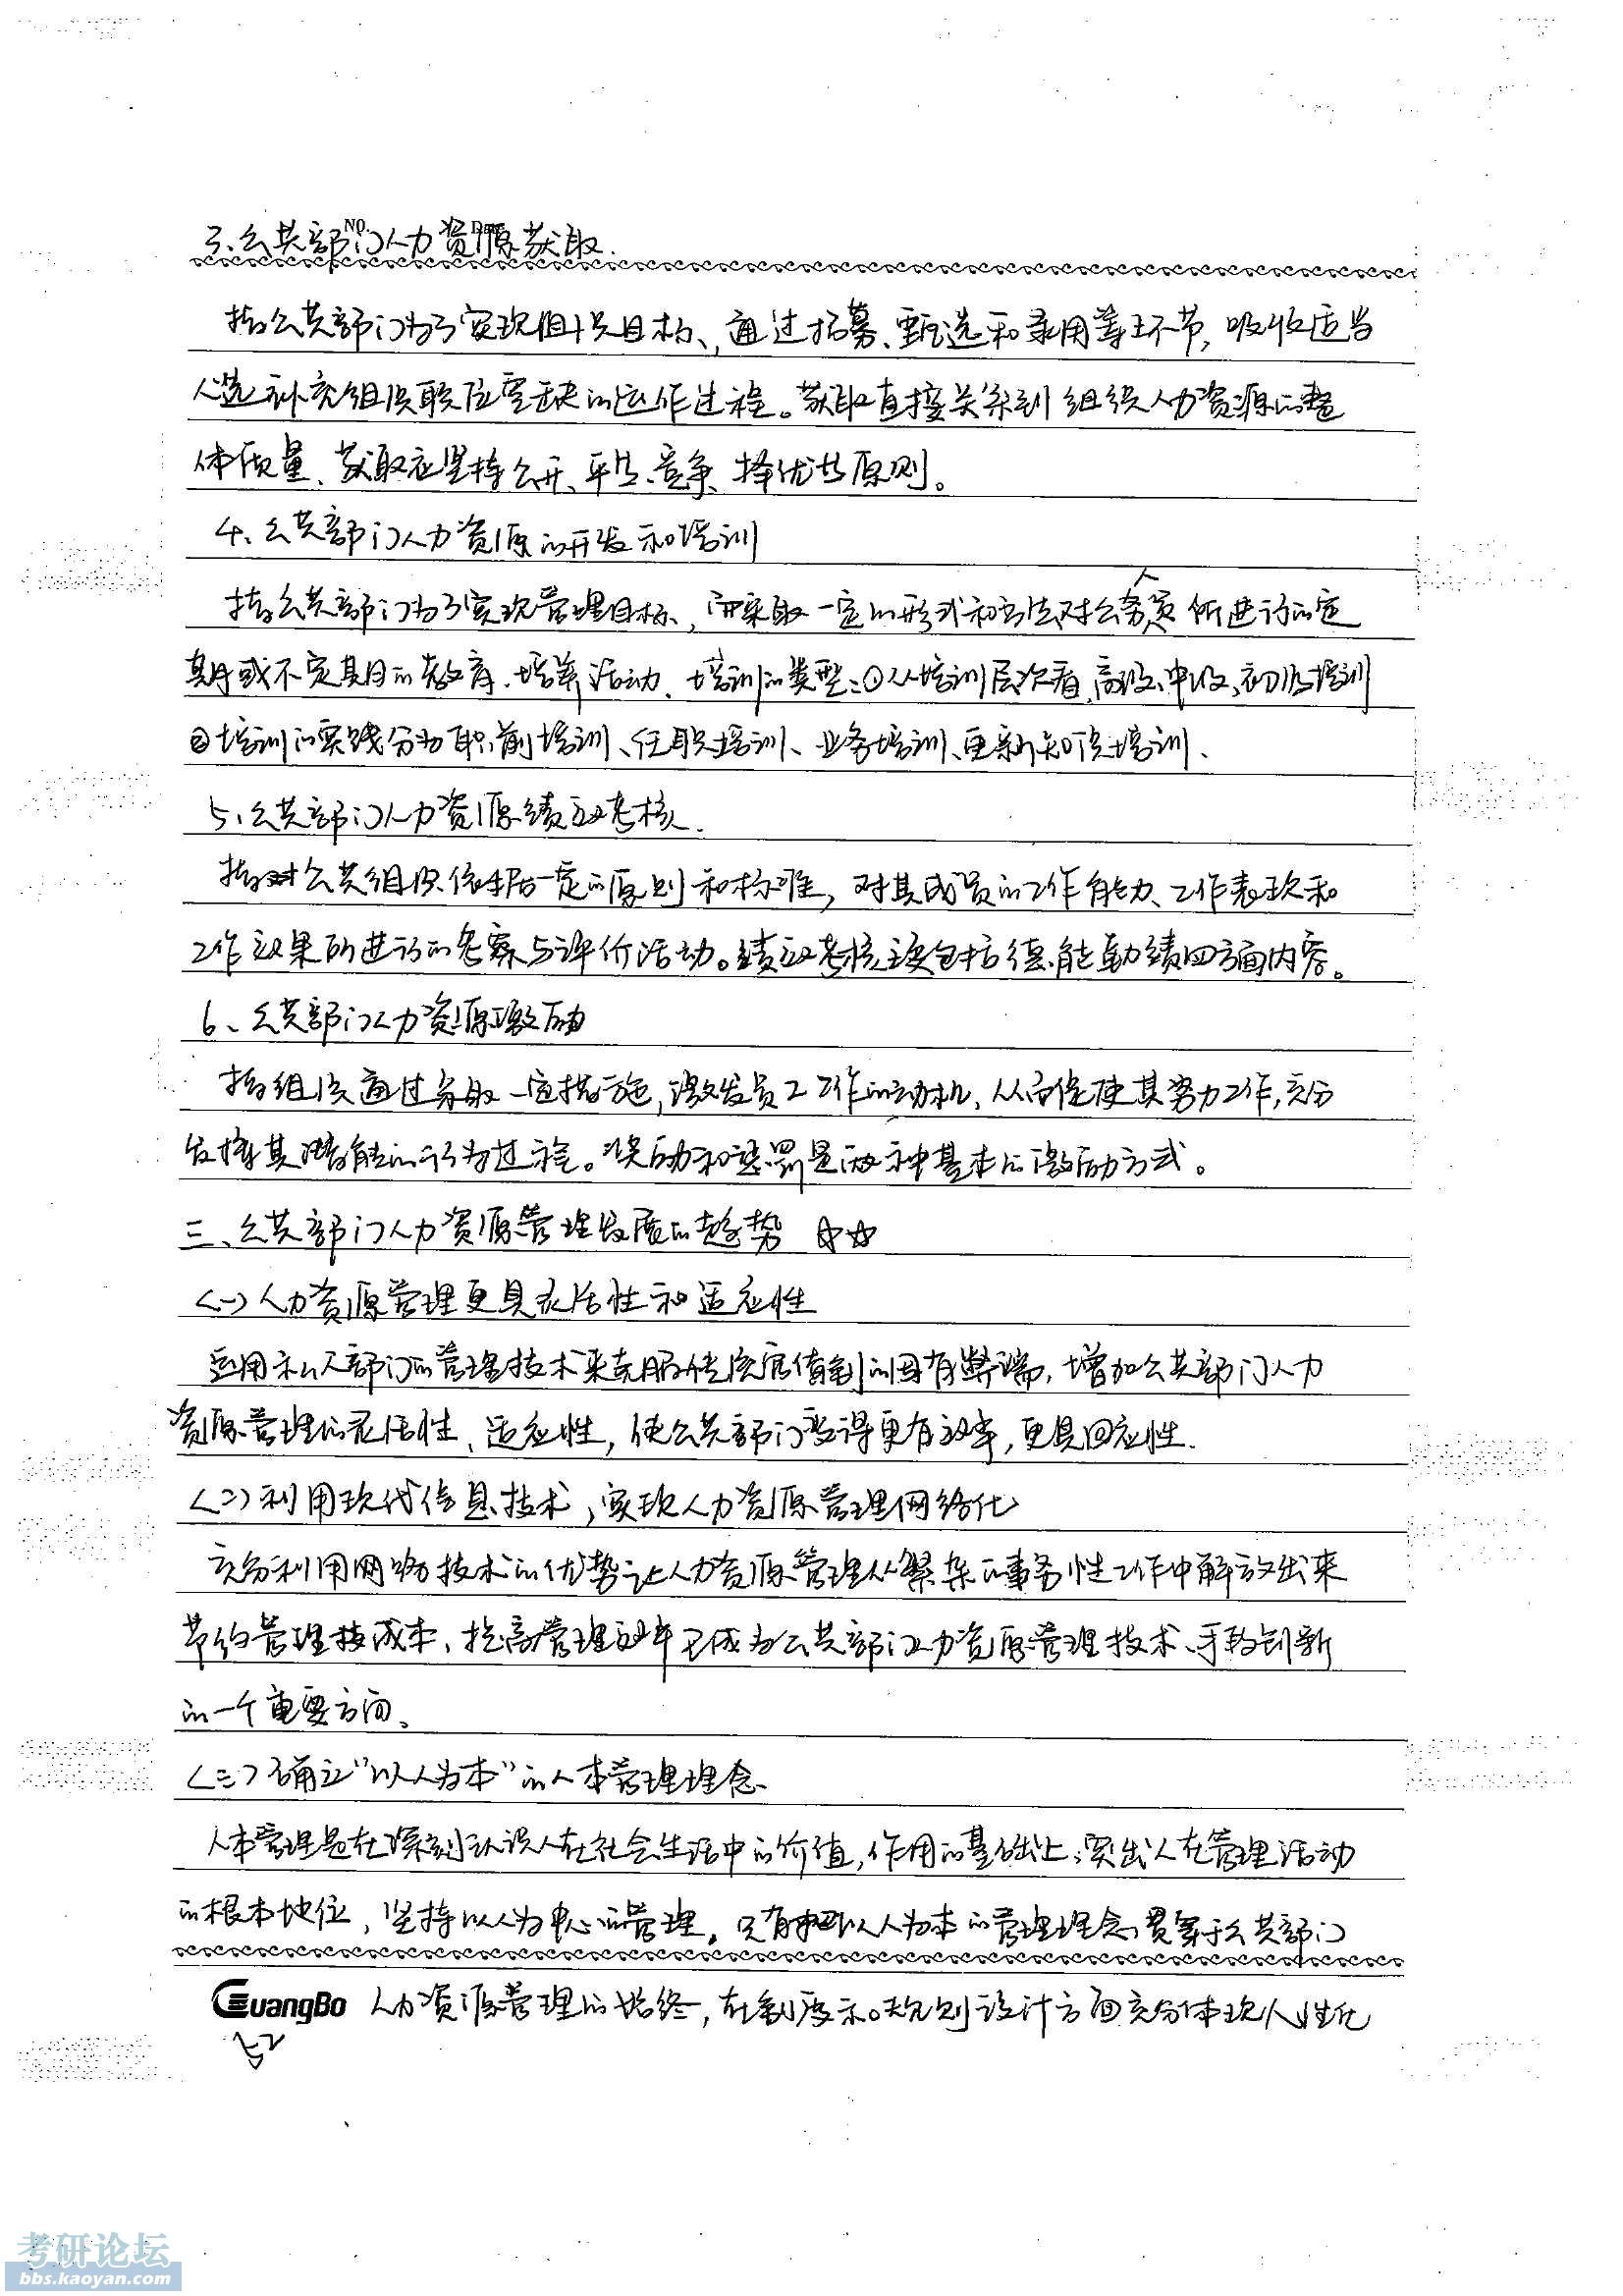 NO.
3、公共部门人力资源获取.
指公共部门为了实现组织目标、通过招募、甄选和录用等环节,吸收适当
人选补充组织职位空缺的运作过程。获取直接关系到组织人力资源的整
体质量、获取应坚持公开、平等、竞争、择优等原则。
4、公共部门人力资源的开发和培训
指公共部门为了实现管理目标、而采取一定的形式和方法对公务人员所进行的定
期或不定期的教育、培养活动、培训的类型:①从培训层次看,高级、中级、初级培训
②培训的实践分为职前培训、任职培训、业务培训、更新知识培训、
5、公共部门人力资源绩效考核.
指对公共组织依据一定的原则和标准,对其成员的工作能力、工作表现和
工作效果所进行的考察与评价活动。绩效考核主要包括德、能、勤、绩四方面内容。
6、公共部门人力资源激励
指组织通过采取一定措施,激发员工工作的动机、从而促使其努力工作,充分
发挥其潜能的行为过程。奖励和惩罚是两种基本的激励方式。
三、公共部门人力资源管理发展的趋势 ☆☆
<一>人力资源管理更具灵活性和适应性
运用私人部门的管理技术来克服传统官僚制的固有弊端,增加公共部门人力
资源管理的灵活性、适应性,使公共部门变得更有效率,更具回应性.
<二>利用现代信息技术,实现人力资源管理网络化
充分利用网络技术的优势让人力资源管理从繁杂的事务性工作中解放出来
节约管理成本、提高管理效率已成为公共部门人力资源管理技术、手段创新
的一个重要方向、
<三>确立"以人为本"的人本管理理念、
人本管理是在深刻认识人在社会生活中的价值,作用的基础上,突出人在管理活动
的根本地位,坚持以人为中心的管理。只有把以人为本的管理理念,贯穿于公共部门
GuangBo 人力资源管理的始终,在制度、规则设计方面充分体现人性化
52
考研论坛
bbs.kaoyan.com